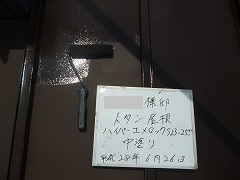 様邸
トタン屋根
ハイパーエメロック523-255
中塗り
平成28年6月26日